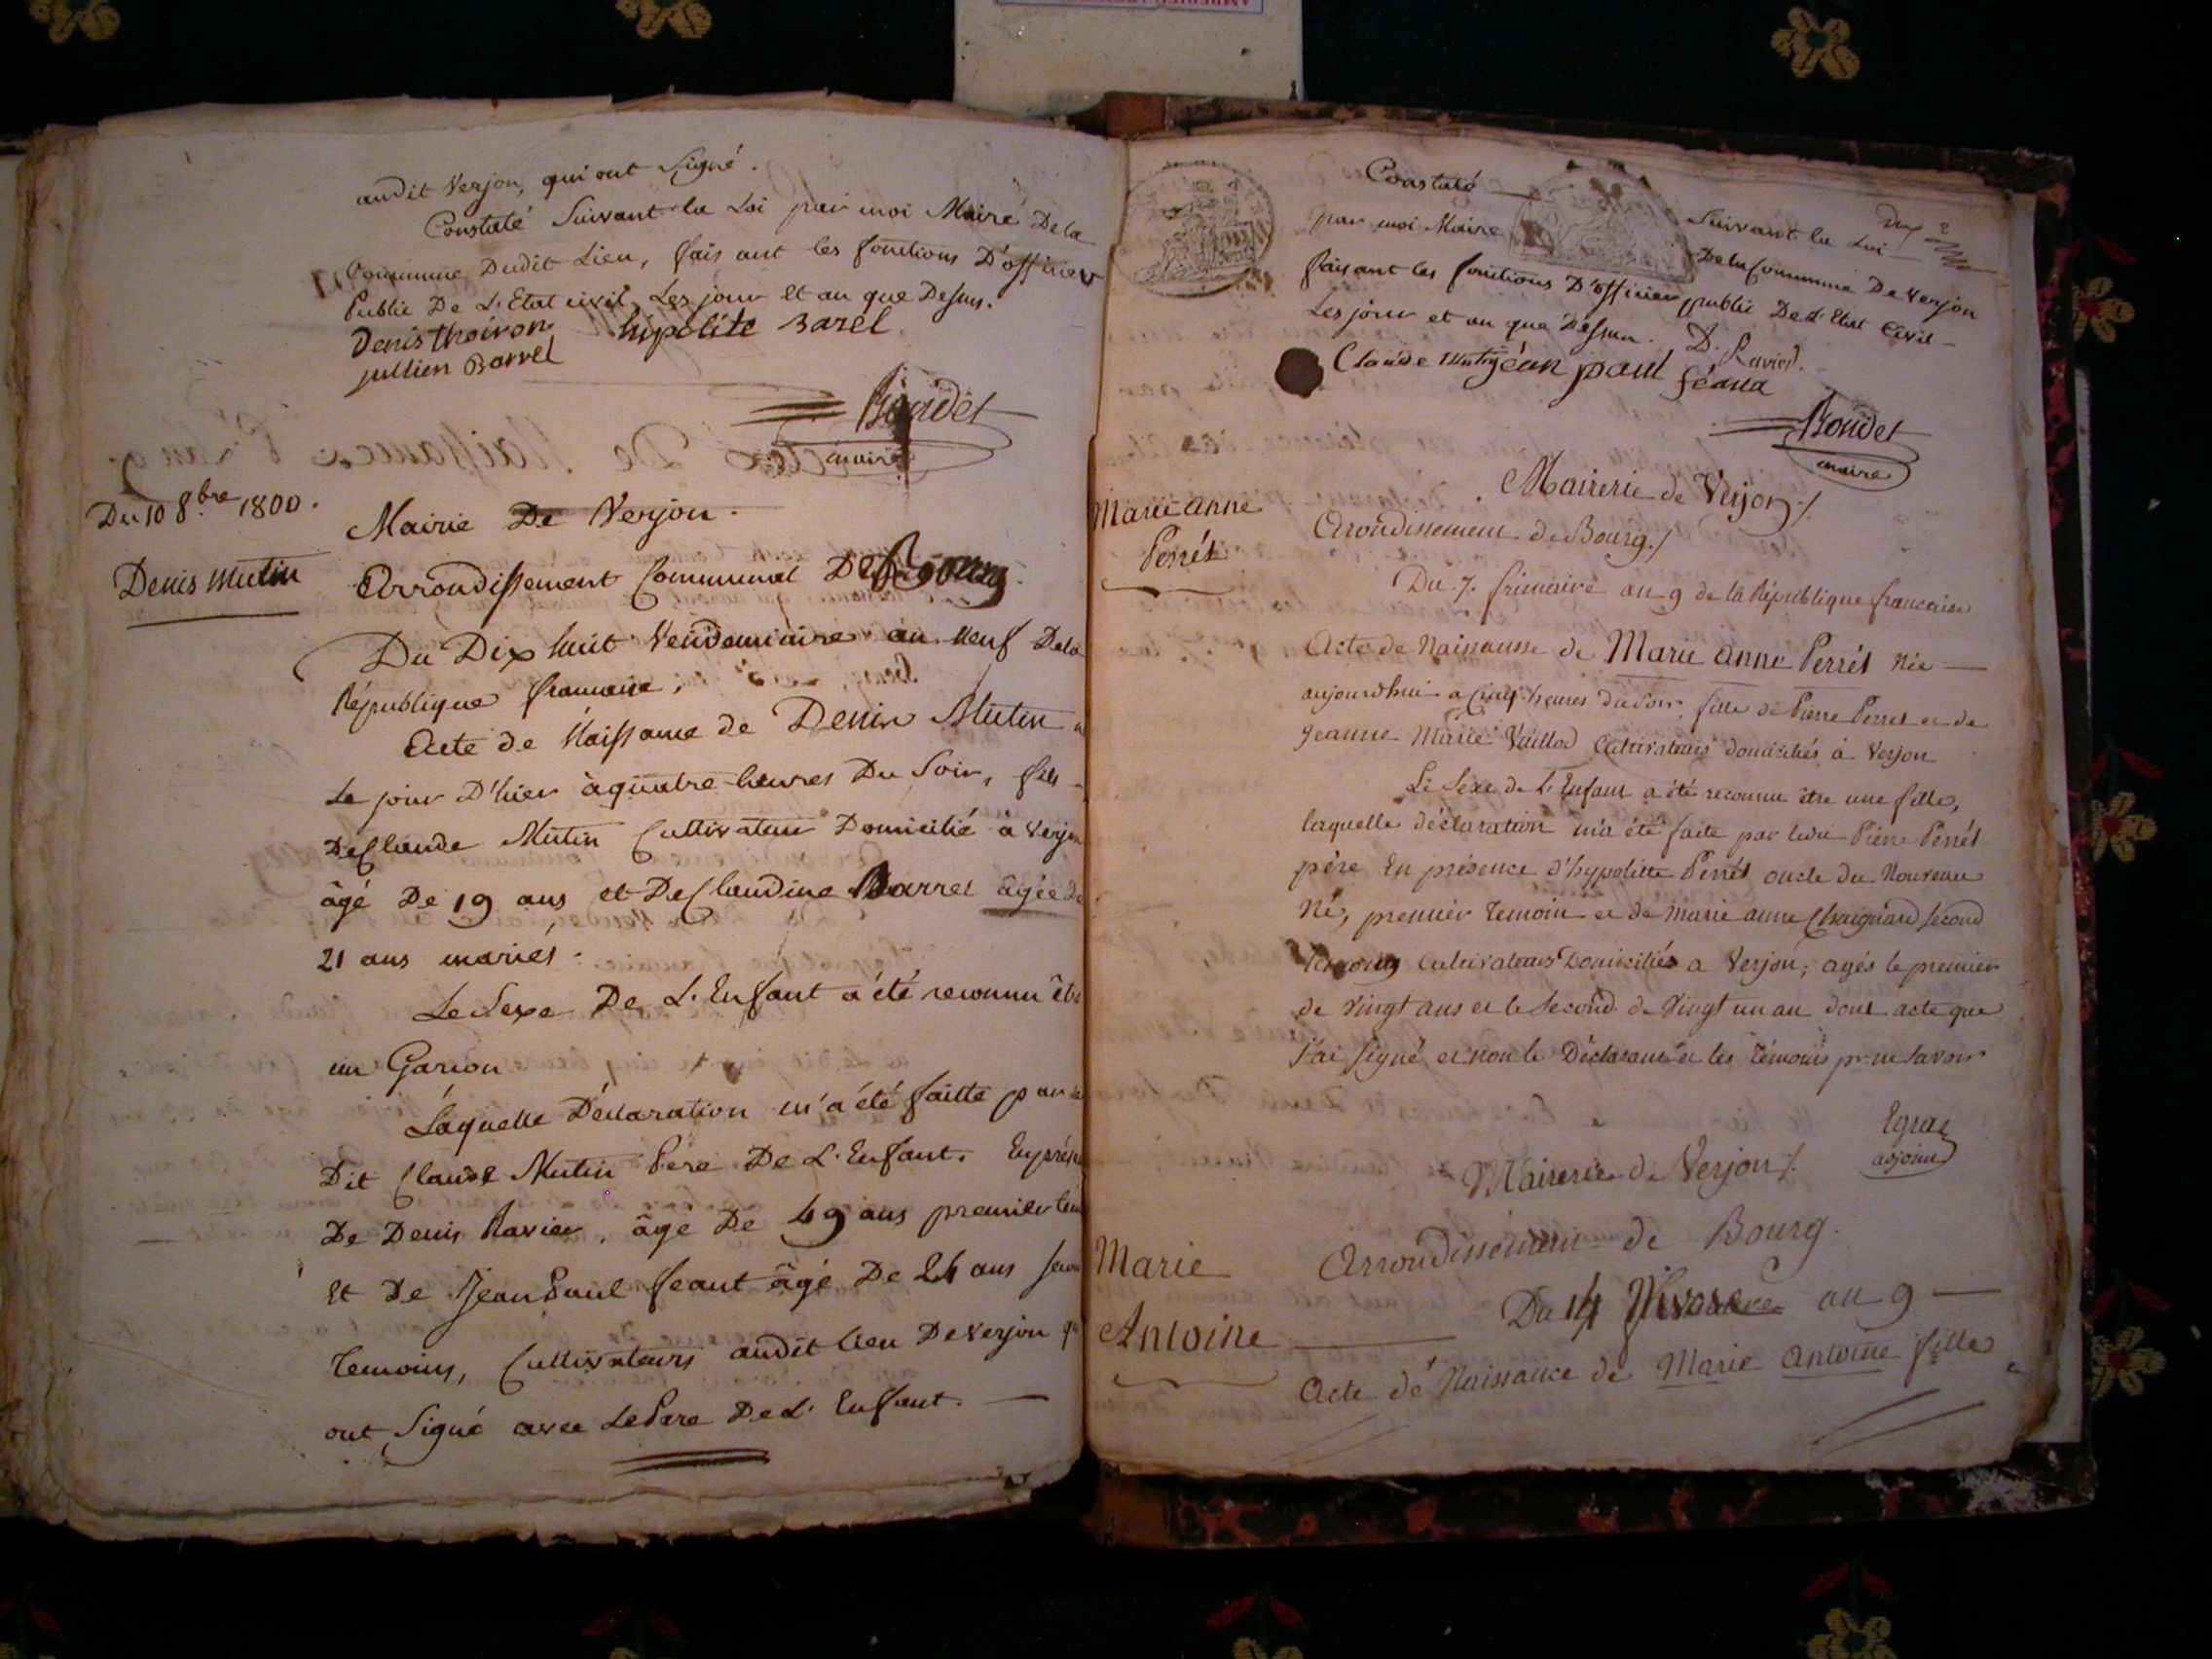 audit Verjon, qui ont Signé.
Constaté Suivant la Loi par moi Maire De la
Commune Dudit Lieu, faisant les fonctions D'officier
Public De L'Etat civil Les jour et an que Dessus.
Denis thoiron hipolite Barel
jullien Barrel
Roudet
maire
Du 10 8.bre 1800.
Denis Mutin
Mairie De Verjon.
Arrondissement Communal De Bourg
Du Dix huit Vendemiaire an neuf Dela
République francaise.
Acte de Naissance de Denis Mutin
Le jour D'hier à quatre heures Du Soir, fils
De Claude Mutin Cultivateur Domicilié à Verjon
âgé De 19 ans et De Claudine Barret âgée de
21 ans mariés.
Le Sexe De L'Enfant a été reconnu être
un Garson
Laquelle Déclaration m'a été faitte par le
Dit Claude Mutin Pere De L'Enfant. En présen
De Denis Ravier, âgé De 49 ans premier tém
Et De Jean Paul feaut âgé De 24 ans secon
Temoins, Cultivateurs audit lieu De Verjon qu
ont Signé avec Le Pere De L'Enfant.
Constaté Suivant la Loi
par moi Maire De la Commune De Verjon
faisant les fonctions D'officier public De L'Etat Civil
Les jour et an que Dessus. D. Ravier.
Claude Mutin jean paul féaud
Roudet
maire
Marie anne
Perrét
Mairerie de Verjon ./.
Arrondissement de Bourg ./
Du 7. frimaire an 9 de la République francaise
Acte de Naissansse de Marie anne Perrét née
aujourdhui a Cinq heures du Soir, fille de Pierre Perret et de
Jeanne Marie Vuillod Cultivateurs domiciliés à Verjon
Le Sexe de L'Enfant a été reconnu être une fille,
laquelle déclaration m'a été faite par ledit Pierre Perrét
père En présence d'hypolitte Perrét oncle du Nouveau
Né, premier Temoin et de Marie anne Chaignard second
Temoing Cultivateurs Domiciliés a Verjon, agés le premier
de Vingt ans et le Second de Vingt un an dont acte que
J'ai Signé et non le Déclarant et les Témoins pr. ne Savoir
Egraz
adjoint
Mairerie de Verjon ./.
Marie
Antoine
Arrondissement de Bourg.
Du 14 Nivose an 9
Acte de Naissance de Marie Antoine fille